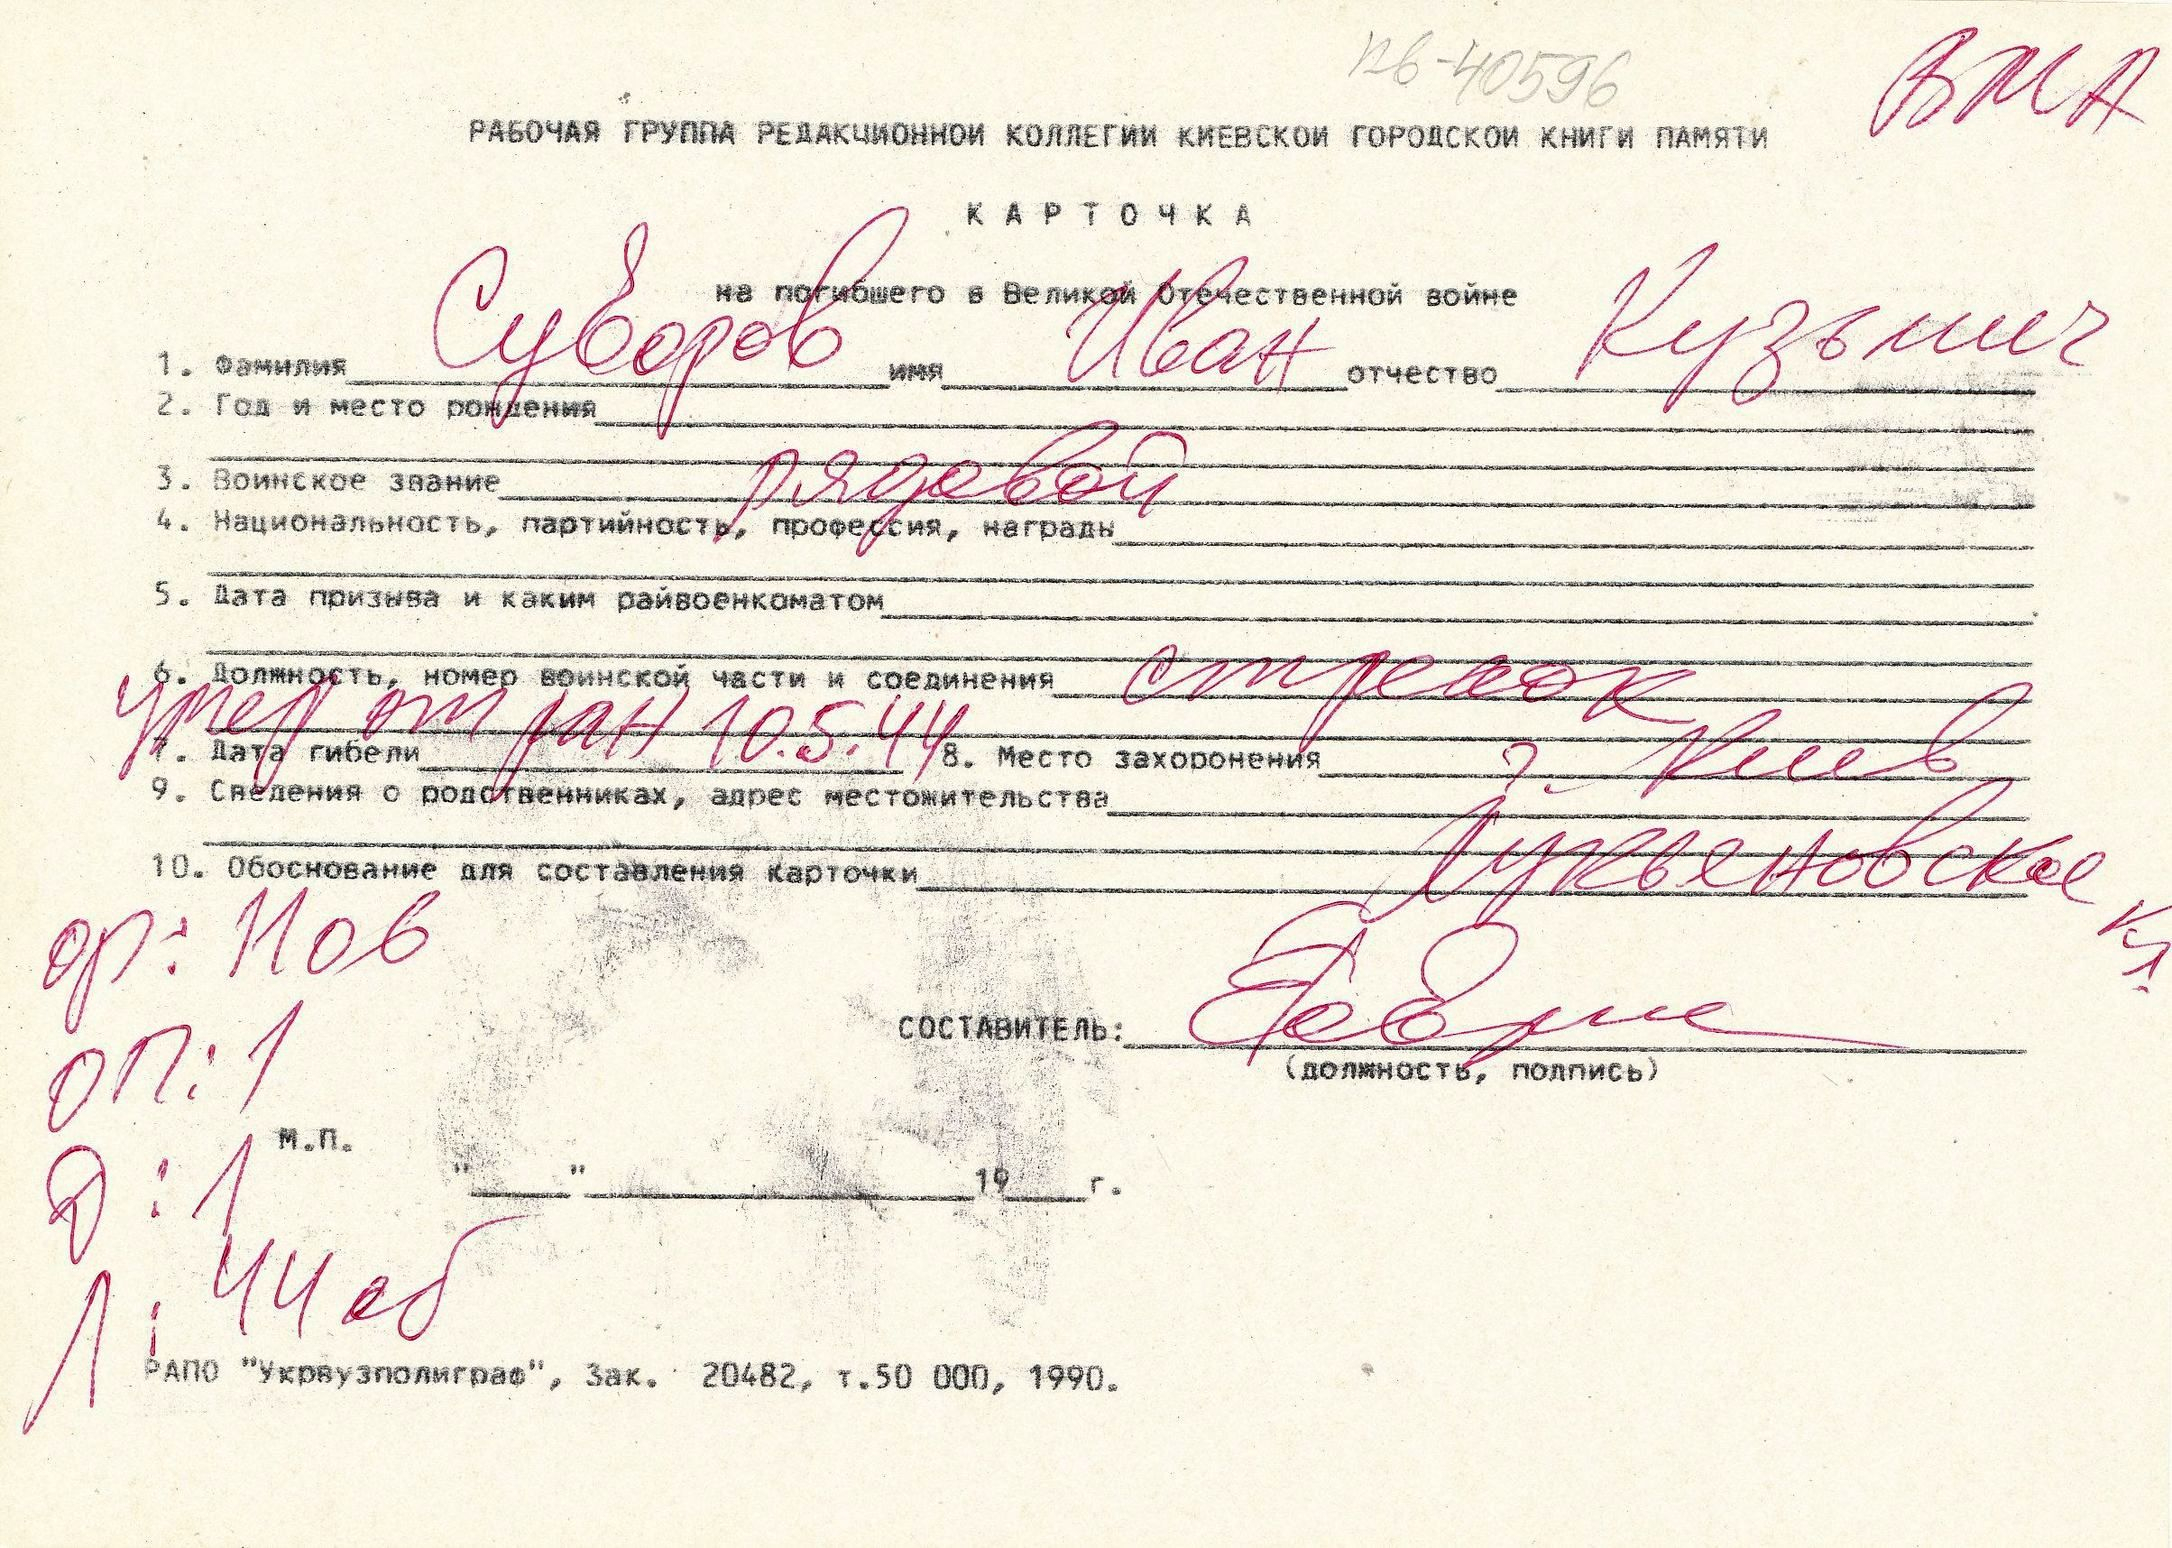 пв-40596
ВМА
РАБОЧАЯ ГРУППА РЕДАКЦИОННОЙ КОЛЛЕГИИ КИЕВСКОЙ ГОРОДСКОЙ КНИГИ ПАМЯТИ
КАРТОЧКА
на погибшего в Великой Отечественной войне
1. Фамилия Суворов имя Иван отчество Кузьмич
2. Год и место рождения
3. Воинское звание рядовой
4. Национальность, партийность, профессия, награды
5. Дата призыва и каким райвоенкоматом
6. Должность, номер воинской части и соединения стрелок
умер от ран 10.5.44
7. Дата гибели 8. Место захоронения г. Киев
9. Сведения о родственниках, адрес местожительства
Лукьяновское кл.
10. Обоснование для составления карточки
ор: Нов
СОСТАВИТЕЛЬ:
(должность, подпись)
оп: 1
М.П.
Д: 1
"___"___19___г.
Л: 44 об
РАПО "Укрвузполиграф", Зак. 20482, т.50 000, 1990.